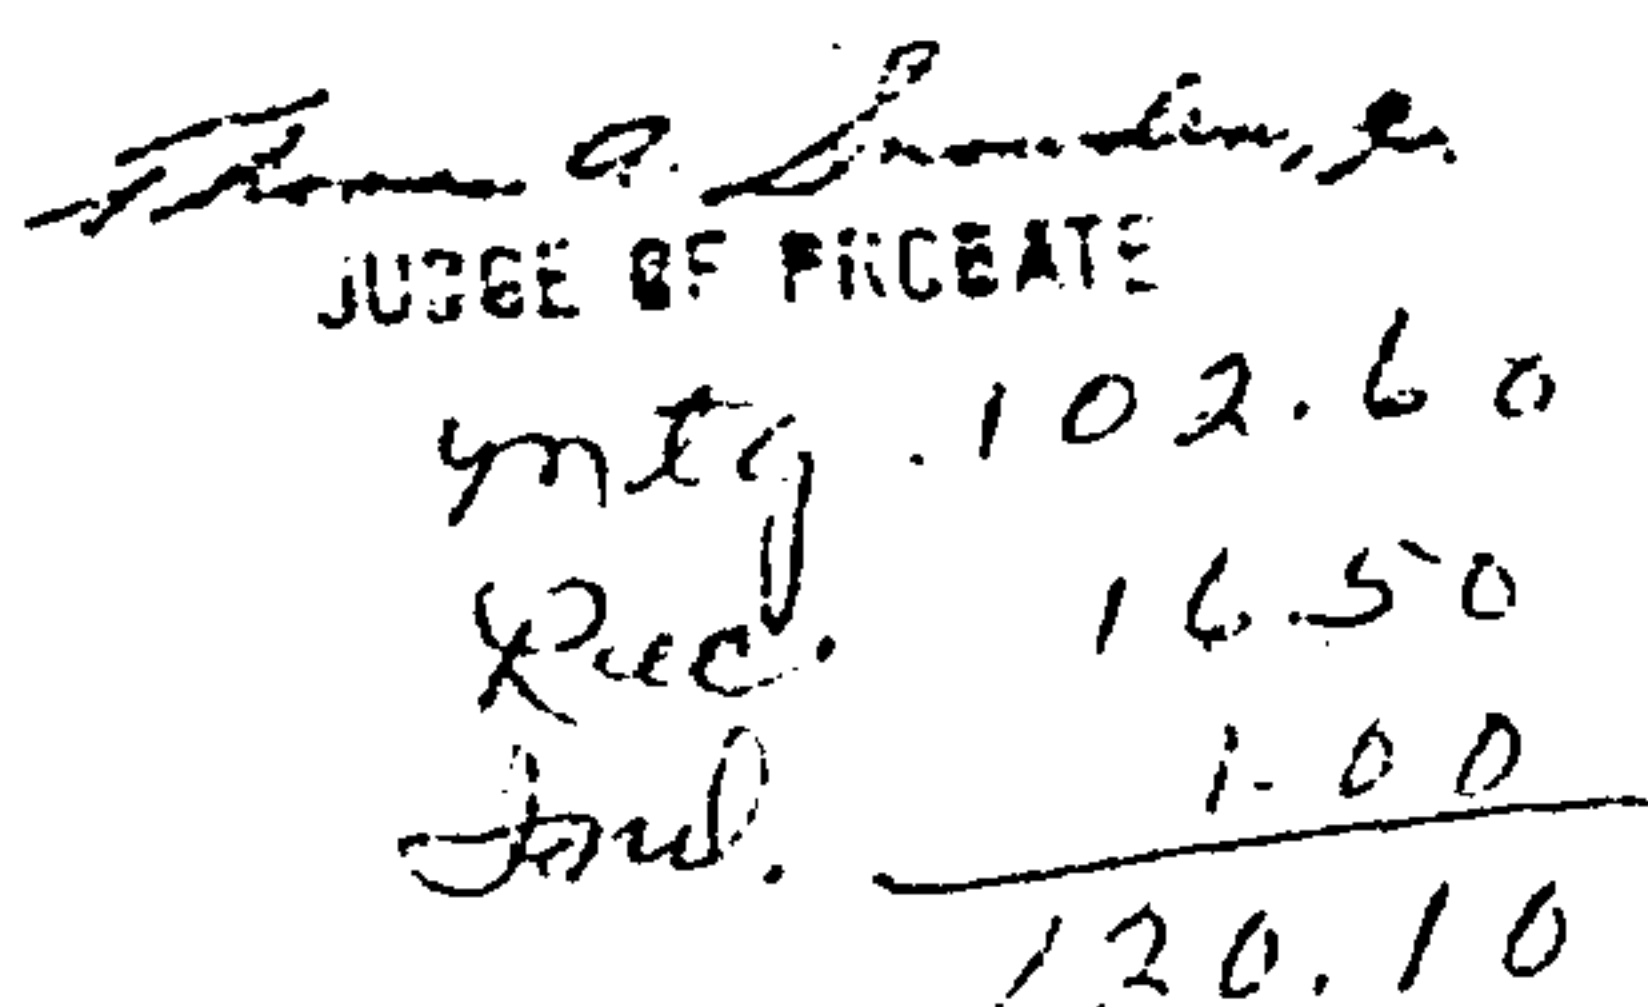 Thomas A. Snowden, Jr.
JUDGE OF PROBATE
Mtg. 102.60
Rec. 16.50
Ind. 1.00
120.10